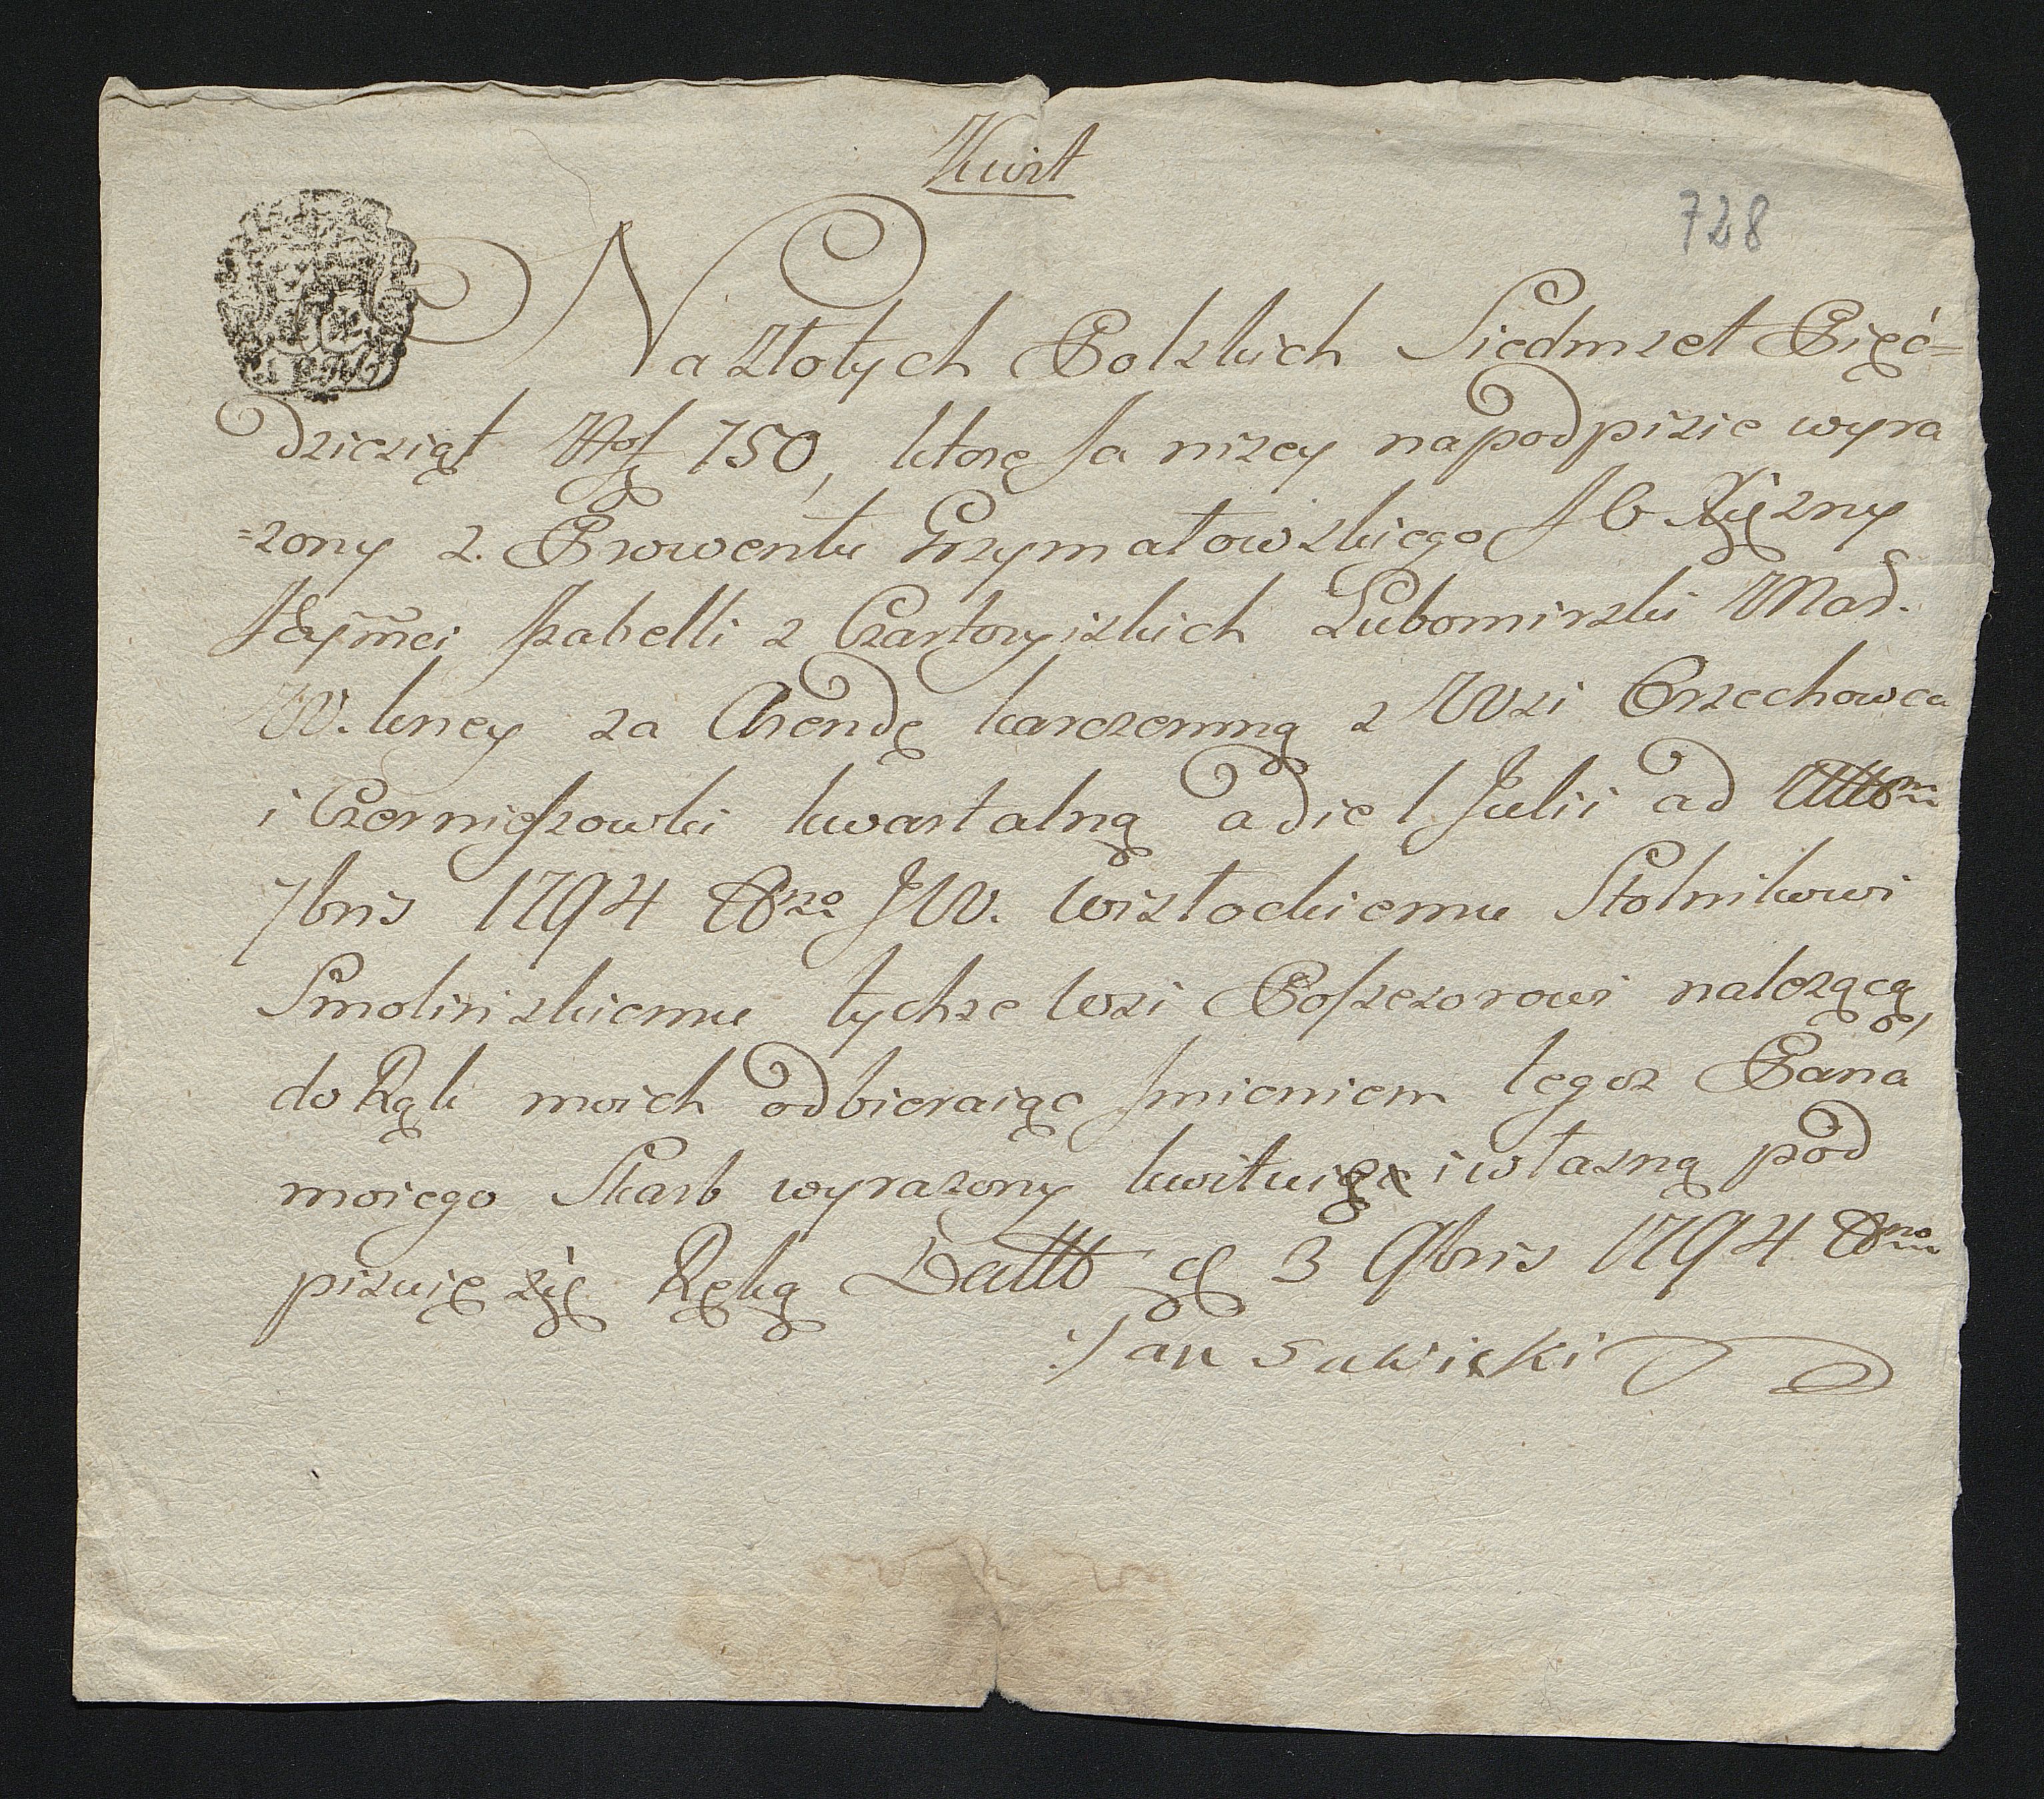 Kwit
728
Na złotych Polskich Siedmset Pięć=
dziesiąt 750, ktorę Ja niżey na podpisie wyra
=zony z. Prowentu Grzymałowskiego JO Xiężny
Jeymci Izabelli z Czartoryiskich Lubomirski Mar.
W. kney za Arendę karczemną z Wsi Orzechowca
i Czerniszowki kwartalną a die 1 Julii ad
7bris 1794 JW. Wisłockiemu Stolnikowi
Smolińskiemu tychże Wsi Possesorowi należącą,
do Rąk moich odbieraiąc Imieniem tegoż Pana
moiego Skarb wyrażony kwituię i własną pod
pisuię się Ręką Datt d 3 9bris 1794
Jan Sawicki